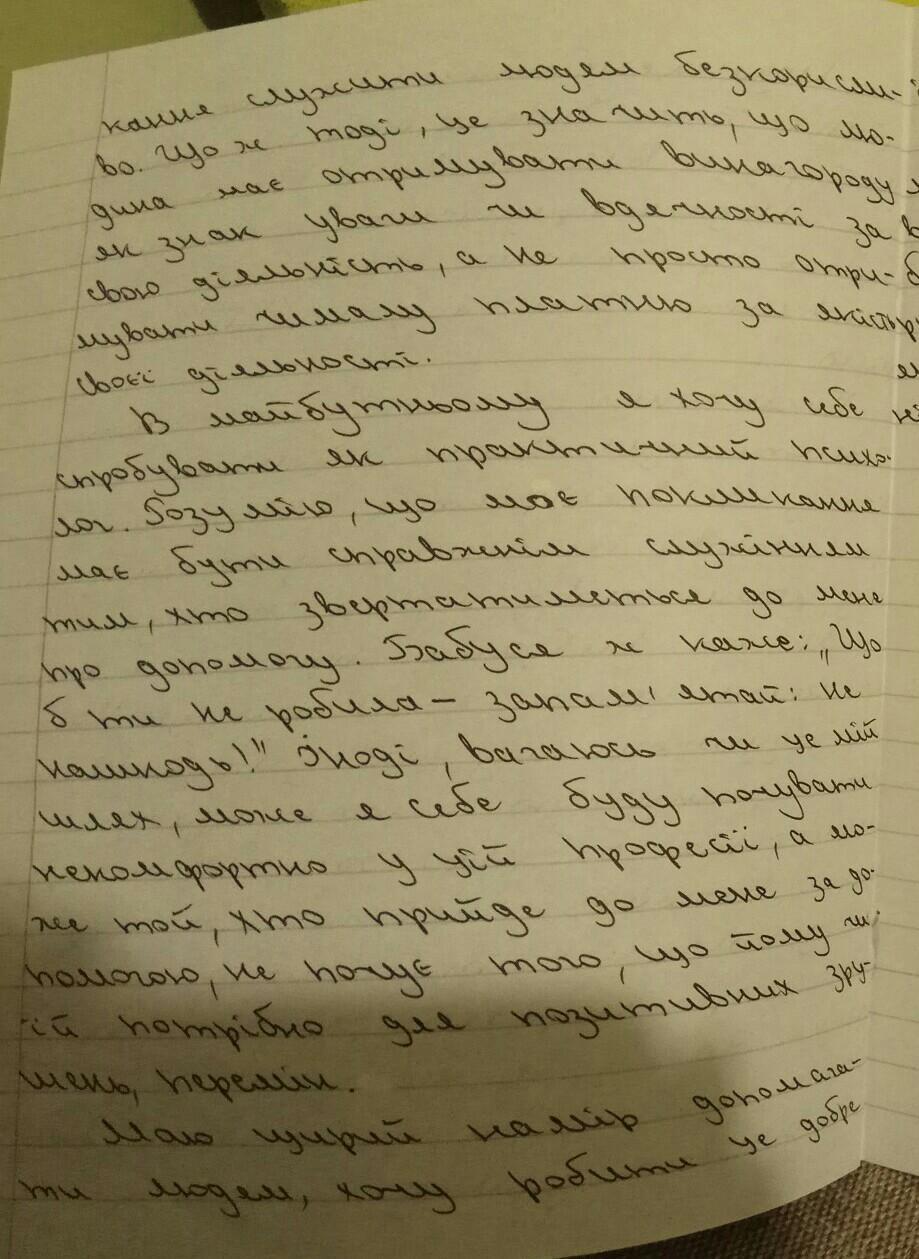 кання служити людям безкорисли-
во. Що ж тоді, це значить, що лю-
дина має отримувати винагороду
як знак уваги чи вдячності за
свою діяльність, а не просто отри-
мувати чималу платню за якість
своєї діяльності.
В майбутньому я хочу себе
спробувати як практичний психо-
лог. Розумію, що моє покликання
має бути справжнім служінням
тим, хто звертатиметься до мене
про допомогу. Бабуся ж каже: „Що
б ти не робила – запам'ятай: не
нашкодь!" Іноді, вагаюсь чи це мій
шлях, може я себе буду почувати
некомфортно у цій професії, а мо-
же той, хто прийде до мене за до-
помогою, не почує того, що йому чи
їй потрібно для позитивних зру-
шень, перемін.
Маю щирий намір допомага-
ти людям, хочу робити це добре